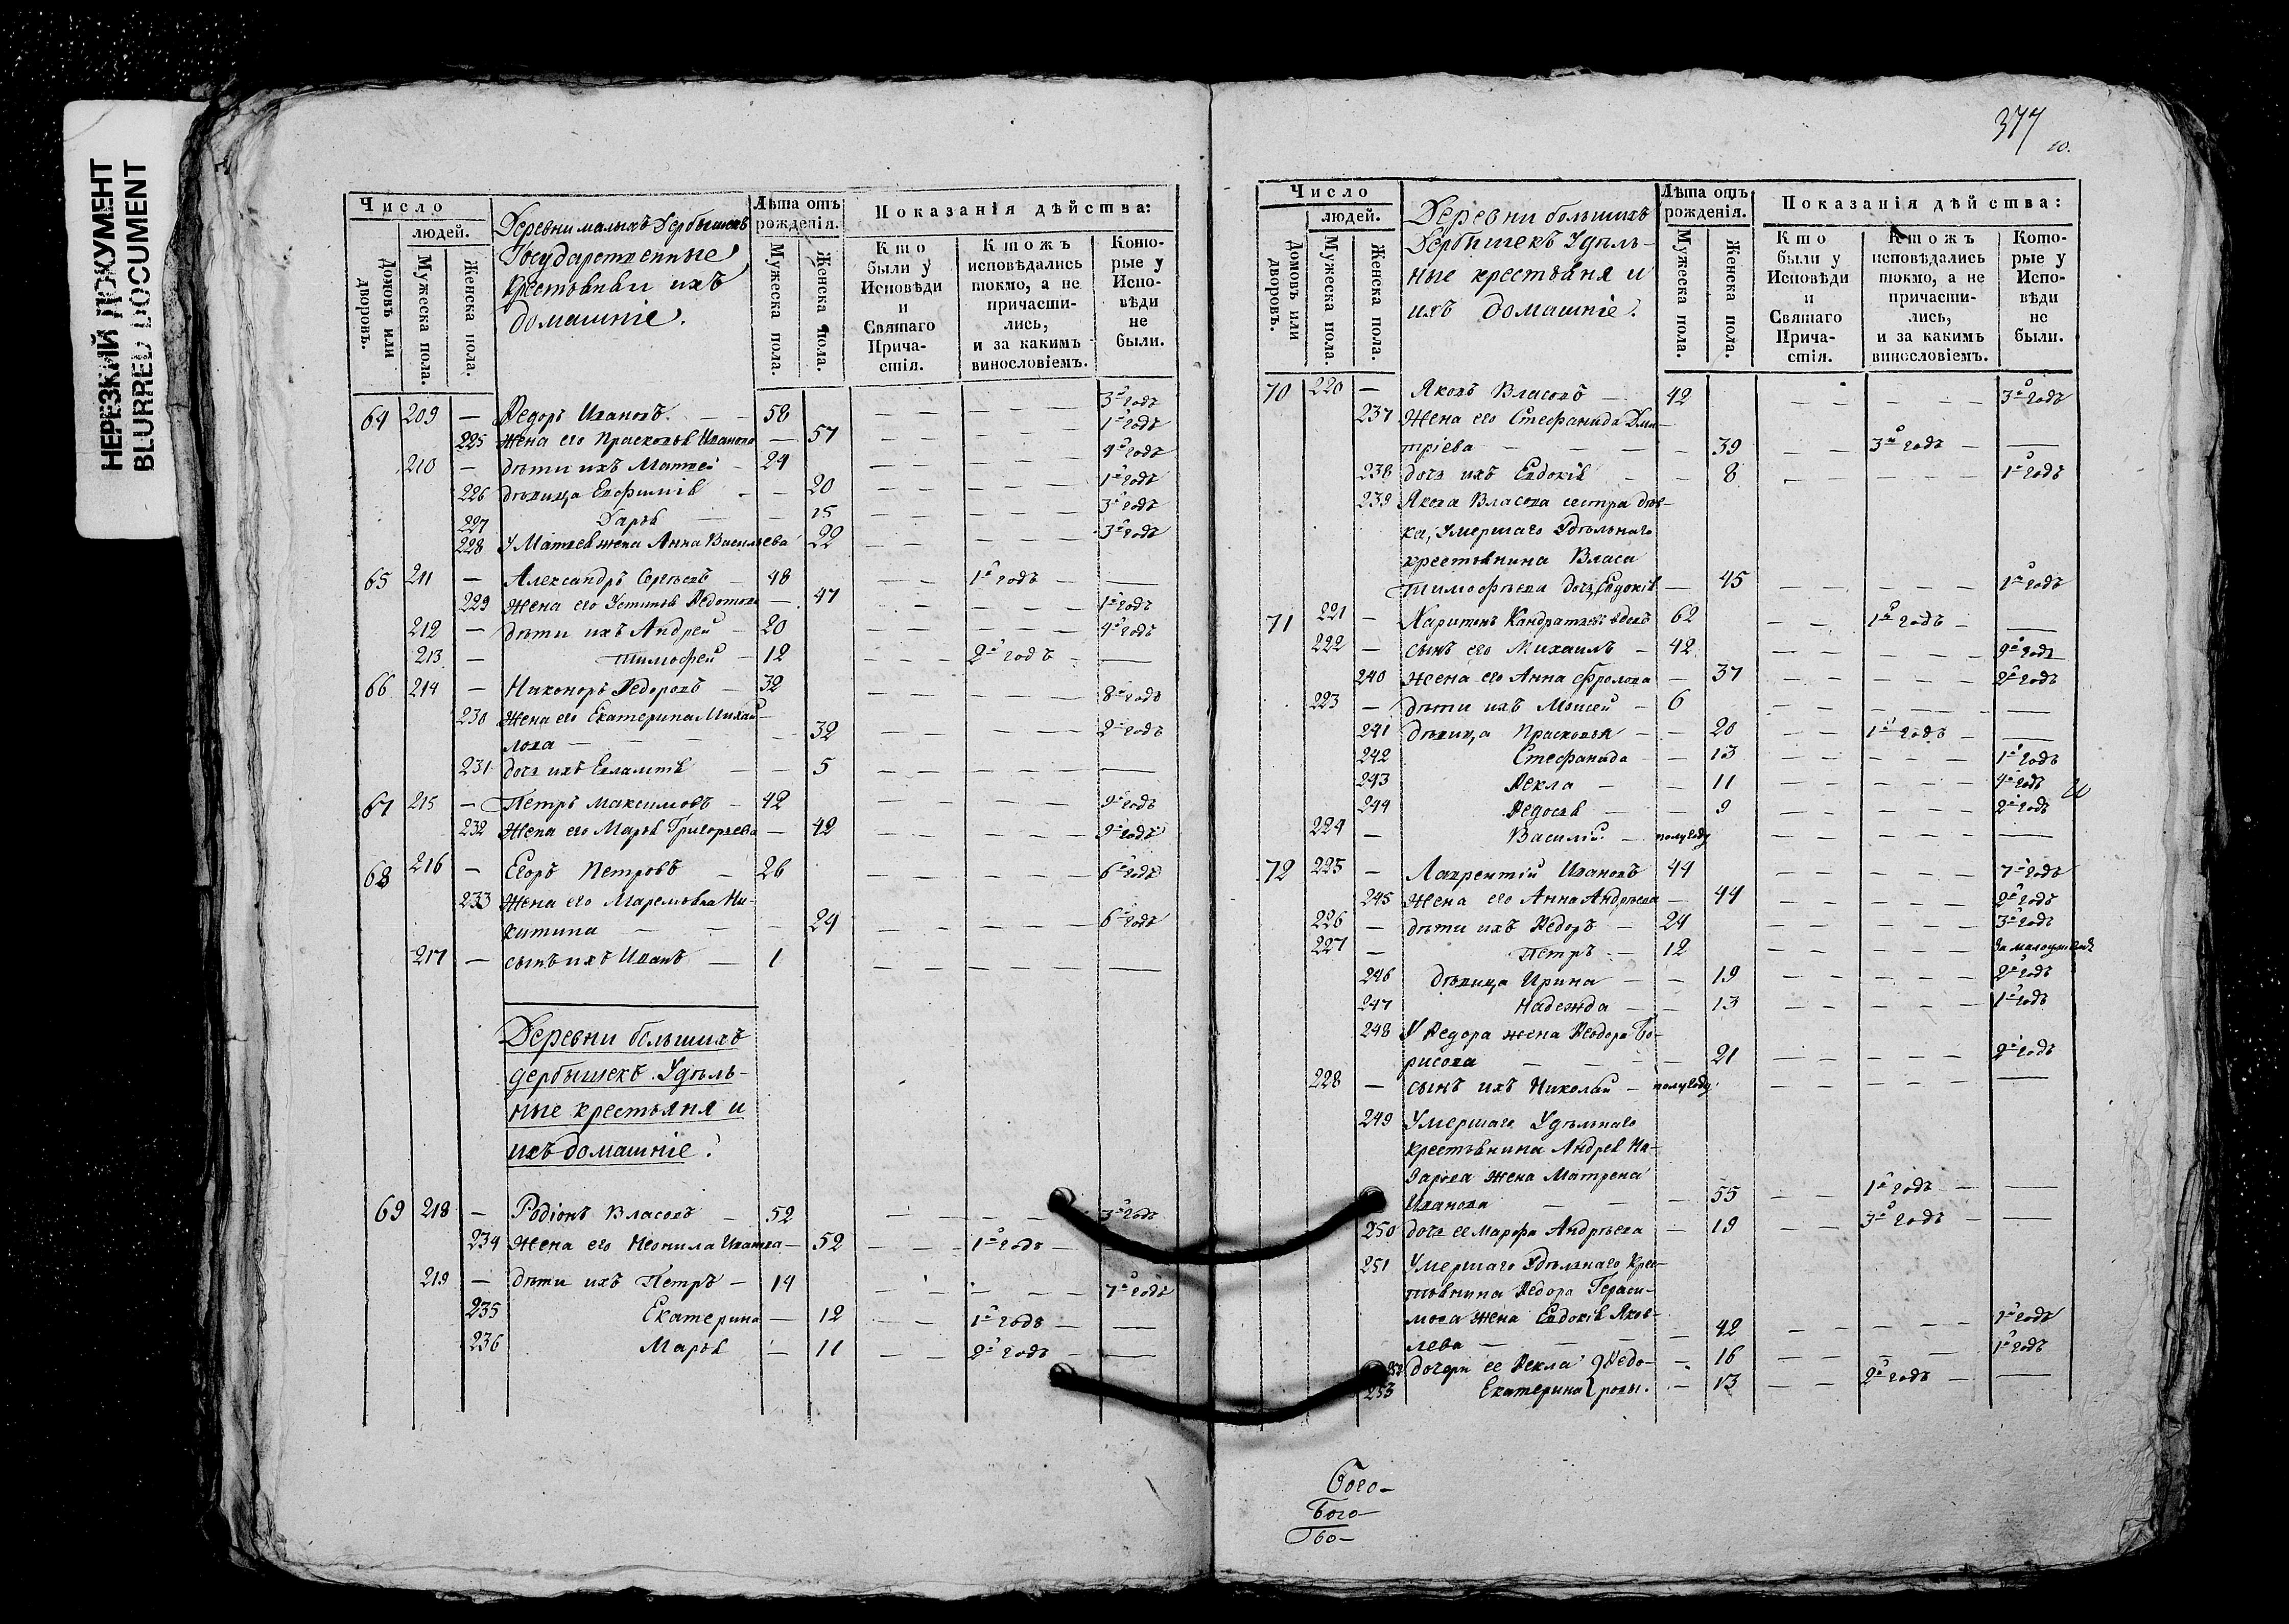 НЕРЕЗКИЙ ДОКУМЕНТ
BLURRED DOCUMENT
Число
людей.
Домовъ или дворовъ.
Мужеска пола.
Женска пола.
Деревни малыхъ Дербышекъ
Государственные
крестьяны ихъ
домашніе.
Лѣта отъ рожденія.
Мужеска пола.
Женска пола.
Показанія дѣйства:
Кто были у Исповѣди и Святаго Прича-стія.
Ктожъ исповѣдались токмо, а не причасти-лись, и за какимъ винословіемъ.
Кото-рые у Испо-вѣди не были.
64 209 — Ѳедоръ Ивановъ — 58 — — — — — 3й годъ
225 Жена его Прасковья Иванова — 57 — — — — — 1й годъ
210 — дѣти ихъ Матѳей — 24 — — — — — 4й годъ
226 дѣвица Евфимія — — 20 — — — — — 1й годъ
227 Дарья — — 15 — — — — — 3й годъ
228 У Матѳея жена Анна Васильева 22 — — — — — 3й годъ
65 211 — Александръ Сергѣевъ — 48 — — 1й годъ — —
229 Жена его Устинья Ѳедотова — 47 — — — — — 1й годъ
212 — дѣти ихъ Андрей — 20 — — — — — 4й годъ
213 — Тимофей — 12 — — — 2й годъ — —
66 214 — Никоноръ Ѳедоровъ — 32 — — — — — 8й годъ
230 Жена его Екатерина Михай-
лова — — 32 — — — — — 2й годъ
231 дочь ихъ Евлампія — — 5 — — — — — —
67 215 — Петръ Максимовъ — 42 — — — — — 9й годъ
232 Жена его Марья Григорьева — 42 — — — — — 9й годъ
68 216 — Егоръ Петровъ — 26 — — — — — 6й годъ
233 Жена его Маремьяна Ни-
китина — — — 24 — — — — — 6й годъ
217 — сынъ ихъ Иванъ — 1 — — — — — —
Деревни большихъ
дербышекъ Удѣль-
ные крестьяня и
ихъ домашніе.
69 218 — Родіонъ Власовъ — 52 — — — — 3й годъ
234 Жена его Неонила Иванова — 52 — — — 1й годъ —
219 — дѣти ихъ Петръ — 14 — — — — — 7й годъ
235 Екатерина — 12 — — 1й годъ — —
236 Марья — 11 — — 2й годъ — —
377
10.
Число
людей.
Домовъ или дворовъ.
Мужеска пола.
Женска пола.
Деревни большихъ
Дербышекъ Удѣль-
ные крестьяня и
ихъ домашніе.
Лѣта отъ рожденія.
Мужеска пола.
Женска пола.
Показанія дѣйства:
Кто были у Исповѣди и Святаго Прича-стія.
Ктожъ исповѣдались токмо, а не причасти-лись, и за какимъ винословіемъ.
Кото-рые у Испо-вѣди не были.
70 220 — Яковъ Власовъ — 42 — — — — — 3й годъ
237 Жена его Стефанида Дми-
тріева — — — 39 — — 3й годъ — —
238 дочь ихъ Евдокія — — 8 — — — — 1й годъ
239 Якова Власова сестра дѣв-
ка, Умершаго Удѣльнаго
крестьянина Власа
Тимофѣева дочь Евдокія — 45 — — — — — 1й годъ
71 221 — Харитонъ Кандратьевъ вдовъ 62 — — 1й годъ — —
222 — сынъ его Михаилъ — 42 — — — — — 9й годъ
240 Жена его Анна Фролова — 37 — — — — — 2й годъ
223 — дѣти ихъ Моисей — 6 — — — — — —
241 дѣвица Прасковья — — 20 — — 1й годъ — —
242 Стефанида — — 13 — — — — — 1й годъ
243 Ѳекла — — 11 — — — — — 4й годъ
244 Ѳедосья — — 9 — — — — — 2й годъ
224 — Василій — полугоду — — — — — —
72 225 — Лаврентій Ивановъ 44 — — — — — 7й годъ
245 Жена его Анна Андрѣева — 44 — — — — — 2й годъ
226 — дѣти ихъ Ѳедоръ — 24 — — — — — 3й годъ
227 — Петръ — 12 — — — — —
246 дѣвица Ирина — — 19 — — — — — 2й годъ
247 Надежда — — 13 — — — — — 1й годъ
248 У Ѳедора жена Ѳеодора Бо-
рисова — — — 21 — — — — — 2й годъ
228 — сынъ ихъ Николай — полугоду — — — — — —
249 Умершаго Удѣльнаго
крестьянина Андрея На-
зарова жена Матрена
Иванова — — 55 — — 1й годъ — —
250 дочь ее Марфа Андрѣева — 19 — — 3й годъ — —
251 Умершаго Удѣльнаго Крес-
тьянина Ѳедора Гераси-
мова жена Евдокія Яков-
лева — — — 42 — — — — —
252 дочери ее Ѳекла } Ѳедо- — 16 — — 1й годъ
253 Екатерина } ровы. — 13 — — 2й годъ — —
Бого-
Бого-
Бо-